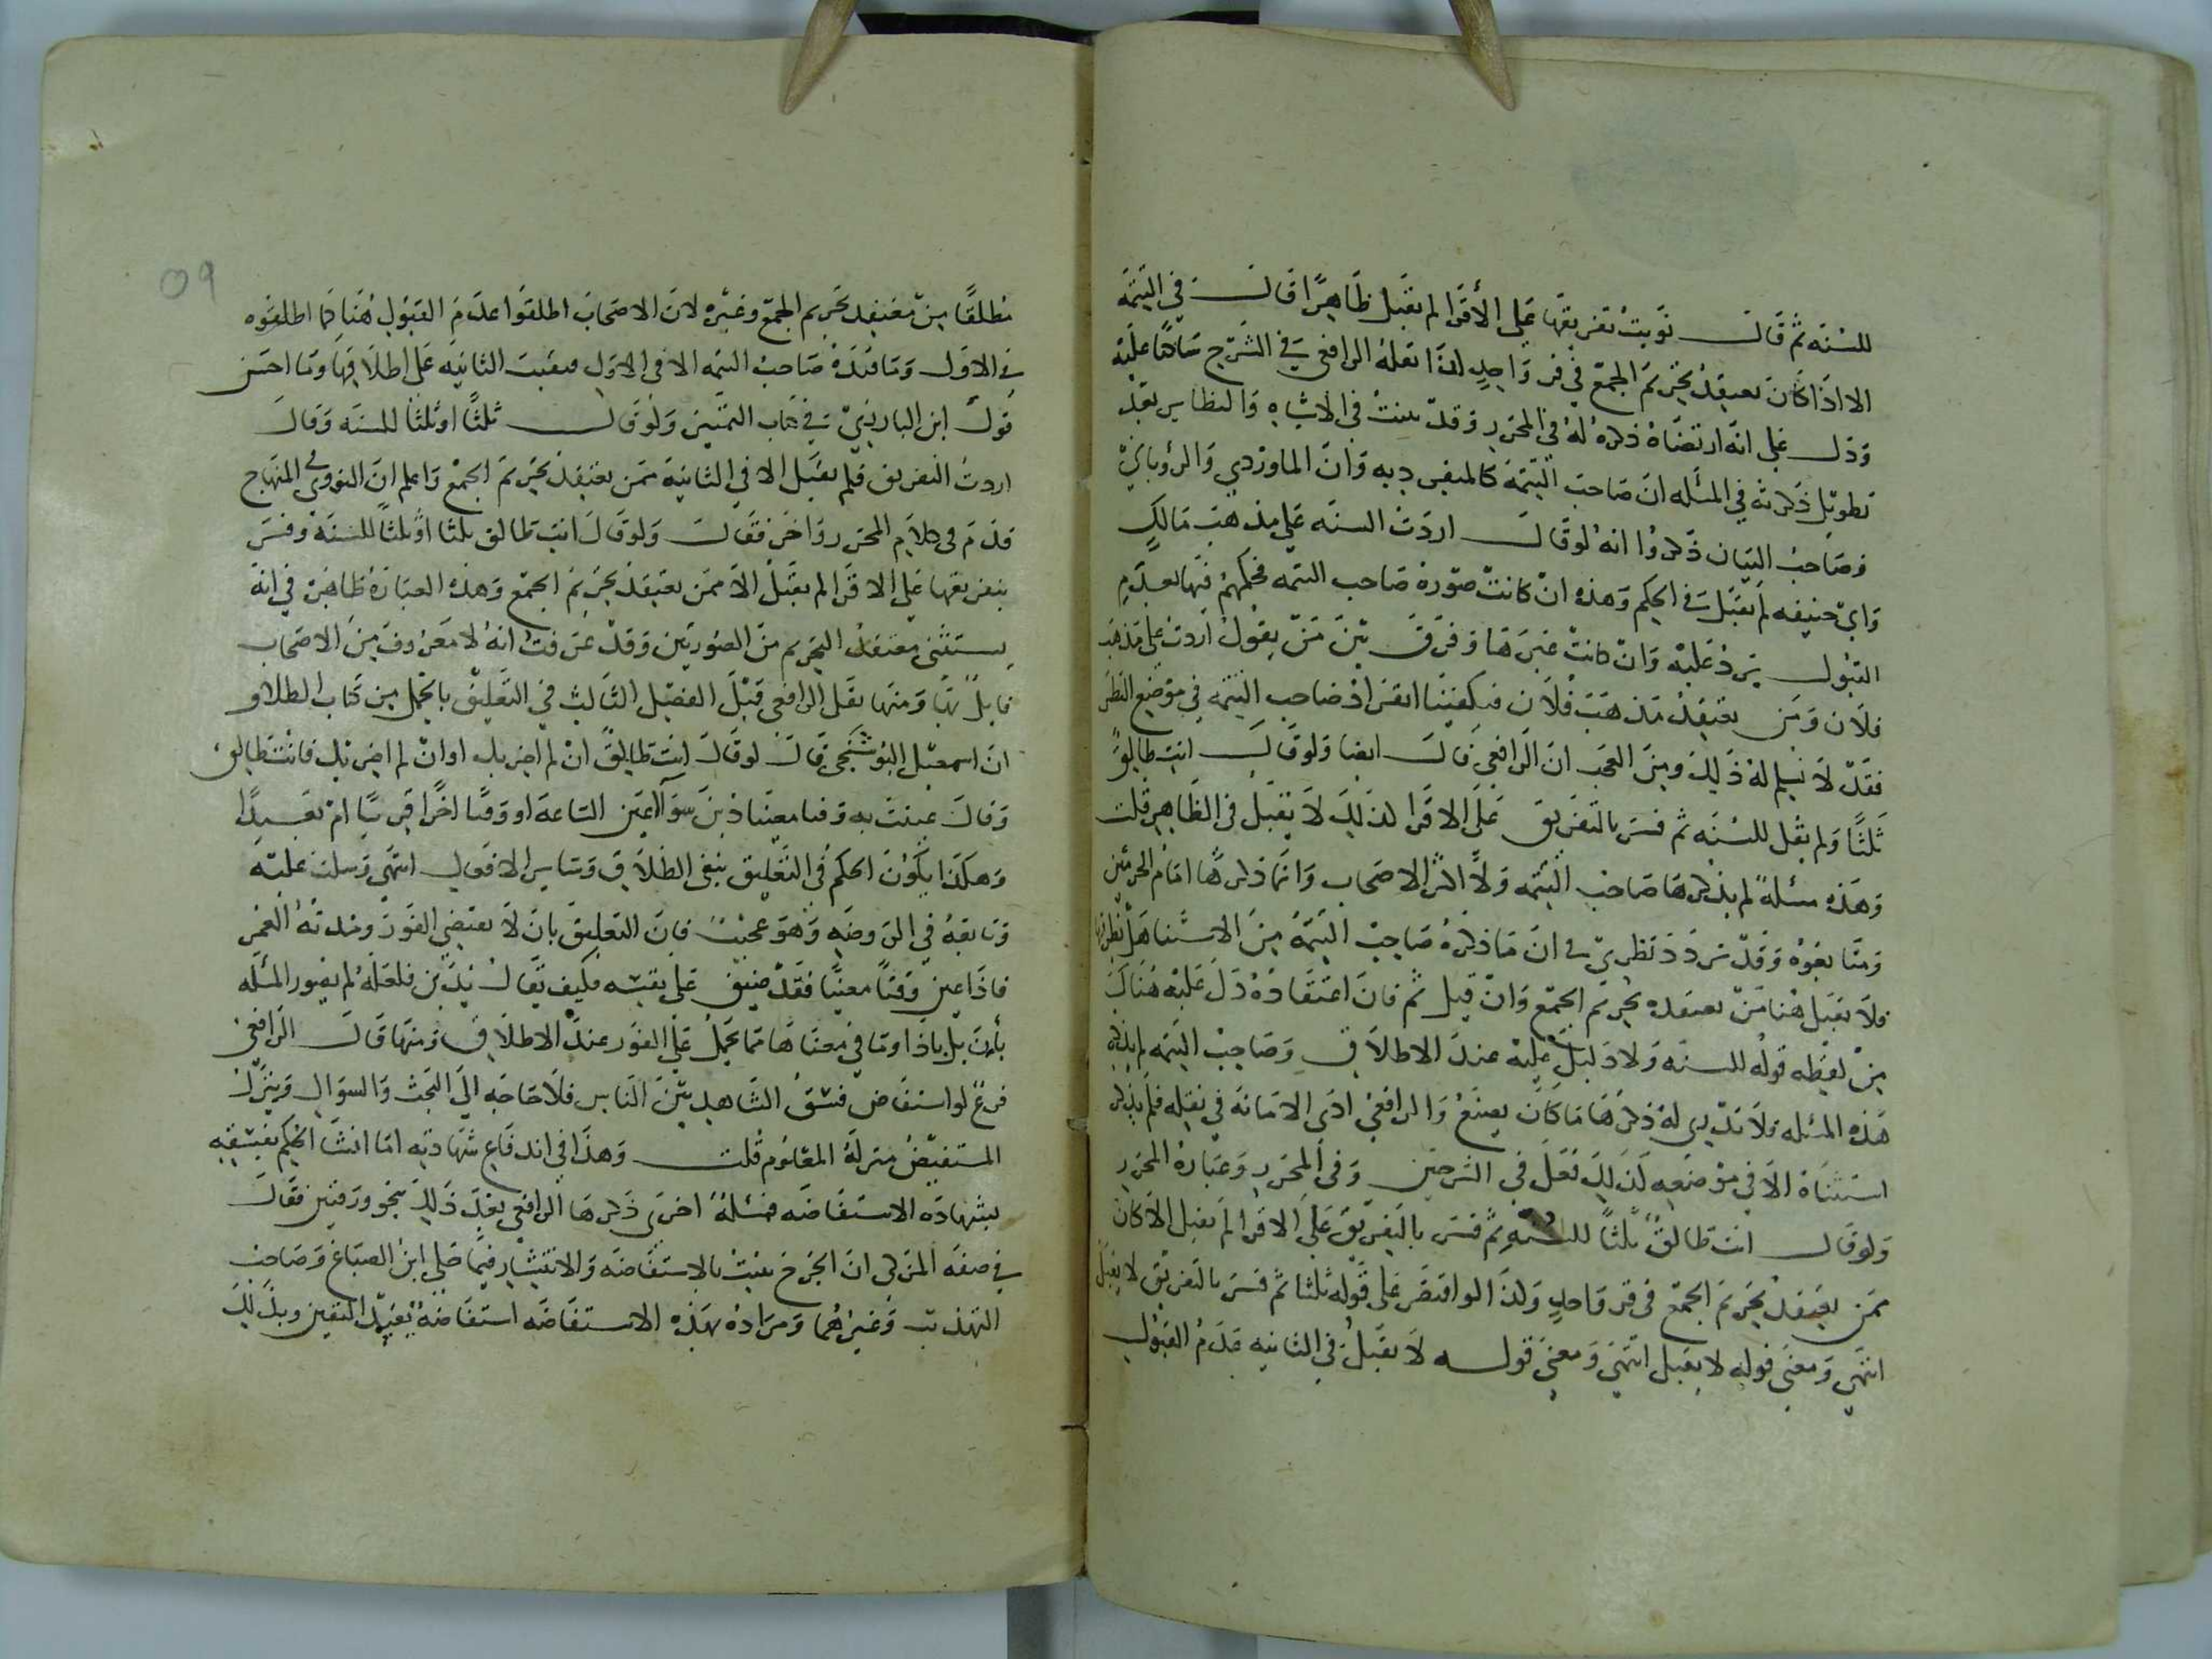 للسنه ثم قال نويت تفريقها على الأقرا لم تقبل ظاهرا قال في التتمه
الا اذا كان يعتقد تحريم الجمع في قر واحد لذا نقله الرافعي في الشرح ساكتا عليه
ودل على انه ارتضاه ذكره له في المحرر وقد بينت في الاشباه والنظاير بعد
تطويل ذكرته في المسله ان صاحب التتمه كالمنفرد به وان الماوردي والروياني
وصاحب البيان ذكروا انه لو قال اردت السنه على مذهب مالك
وابي حنيفه لم يقبل في الحكم وهذه ان كانت صورة صاحب التتمه فحكمهم فيها بعدم
القبول يرد عليه وان كانت غيرها وفرق بين من يقول اردت على مذهب
فلان ومن يعتقد مذهب فلان فيكفينا انفراد صاحب التتمه في موضع النظر
فقد لا يسلم له ذلك ومن العجب ان الرافعي قال ايضا ولو قال انت طالق
ثلثا ولم يقل للسنه ثم فسر بالتفريق على الاقرا لذلك لا يقبل في الظاهر قلت
وهذه مسله لم يذكرها صاحب التتمه ولا اكثر الاصحاب وانما ذكرها امام الحرمين
ومتابعوه وقد تردد نظري في ان ما ذكره صاحب التتمه من الاستثنا هل يطرقها
فلا يقبل هنا من يعتقده تحريم الجمع وان قيل ثم فان اعتقاده دل عليه هناك
من لفظه قوله للسنه ولا دليل عليه عند الاطلاق وصاحب التتمه لم يذكر
هذه المسله ولا ندري له ذكرها ما كان يصنع والرافعي ادى الامانه في نقله فلم يذكر
استثناه الا في موضعه لذلك نقل في الشرحين وفي المحرر وعبارة المحرر
ولو قال انت طالق ثلثا للسنه ثم فسر بالتفريق على الاقرا لم يقبل الا كان
ممن يعتقد تحريم الجمع في قر واحد ولذا لو اقتصر على قوله ثلثا ثم فسر بالتفريق لا يقبل
انتهى ومعنى قوله لا يقبل انتهى ومعنى قوله لا يقبل في الثانيه عدم القبول
مطلقا من معتقد تحريم الجمع وغيره لان الاصحاب اطلقوا عدم القبول هنا كما اطلقوه
في الاول وما قيده صاحب التتمه الا في الاول فبقيت الثانيه على اطلاقها وما احسن
قول ابن البارزي في كتاب التمييز ولو قال ثلثا او ثلثا للسنه وقال
اردت التفريق فلم يقبل الا في الثانية ممن يعتقد تحريم الجمع واعلم ان النووي في المنهاج
قدم في كلام المحرر واخر فقال ولو قال انت طالق ثلثا او ثلثا للسنه وفسر
بتفريقها على الاقرا لم يقبل الا ممن يعتقد تحريم الجمع وهذه العبارة ظاهرة في انه
يستثنى معتقد التحريم من الصورتين وقد عرفت انه لا معروف من الاصحاب
قايل بها ومنها نقل الرافعي قبيل الفصل الثالث في التعليق بالحمل من كتاب الطلاق
ان اسمعيل البوشنجي قال لو قال انت طالق ان لم اضربك او ان لم اضربك فانت طالق
وقال عنيت به وقتا معينا دين سوآ عين الساعه او وقتا اخرا قريبا ام بعيدا
وهكذا يكون الحكم في التعليق بنفي الطلاق وساير الافعال انتهى وسكت عليه
وتابعه في الروضه وهو عجيب فان التعليق بان لا يقتضي الفور ومدته العمر
فاذا عين وقتا معينا فقد ضيق على نفسه فكيف يقال يدين فلعله لم يصور المسله
بان بل باذا وما في معناها مما يحمل على الفور عند الاطلاق ومنها قال الرافعي
فرع لو استفاض فسق الشاهد بين الناس فلا حاجه الى البحث والسوال وينزل
المستفيض منزلة المعلوم قلت وهذا في اندفاع شهادته اما انشا الحكم بفسقه
بشهادة الاستفاضه فمسله اخرى ذكرها الرافعي بعد ذلك بنحو ورقتين فقال
في صفه المزكى ان الجرح يثبت بالاستفاضه والانتشار فيما حكى ابن الصباغ وصاحب
التهذيب وغيرهما ومراده بهذه الاستفاضه استفاضة تفيد اليقين وبذلك